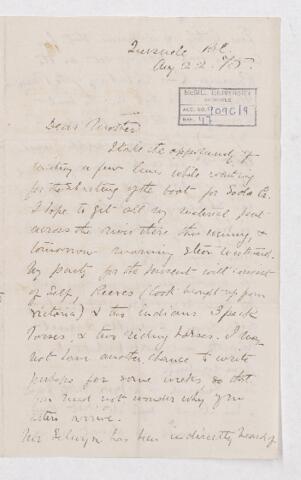 Quesnelle B.C.
Aug 22. /75.
McGILL UNIVERSITY
ARCHIVES
ACC. NO. 1096/9
REF. 47
Dear Mother
I take the opportunity of
writing a few lines while waiting
for the starting of the boat for Soda Ck.
I hope to get all my material put
across the river there this evening, &
tomorrow morning steer westward.
My party for the present will consist
of Self, Reeves (Cook brought up from
Victoria) & two Indians 3 pack
horses, & two riding horses. I may
not have another chance to write
perhaps for some weeks so that
you need not wonder why few
letters arrive.
Mr Selwyn has been indirectly heard of